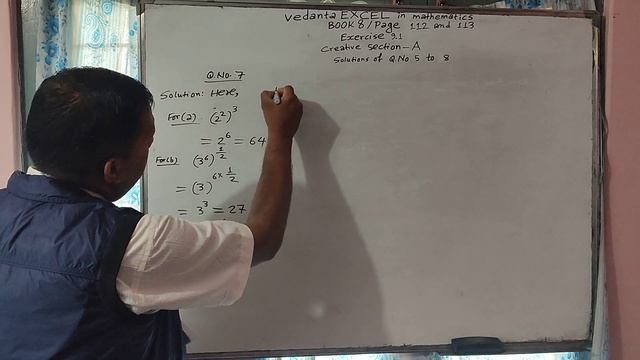 vedanta EXCEL in mathematics
BOOK 8 / Page 112 and 113
Exercise 9.1
Creative section - A
Solutions of Q.No. 5 to 8
Q.No. 7
Solution: Here,
For (a) (2²)³
= 2⁶ = 64
For (b) (3⁶)^(1/2)
= (3)^(6×1/2)
= 3³ = 27